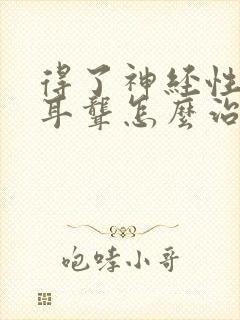 得了神经性
耳聾怎麼治
咆哮小哥